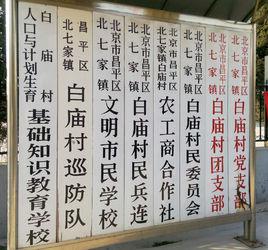 白庙村
人口与计划生育
基础知识教育学校
昌平区
北七家镇
白庙村巡防队
北京市昌平区
北七家镇
文明市民学校
北京市昌平区
北七家镇
白庙村民兵连
北京市昌平区
北七家镇白庙村
农工商合作社
北京市昌平区
北七家镇
白庙村民委员会
北京市昌平区
北七家镇
白庙村团支部
北京市昌平区
北七家镇
白庙村党支部